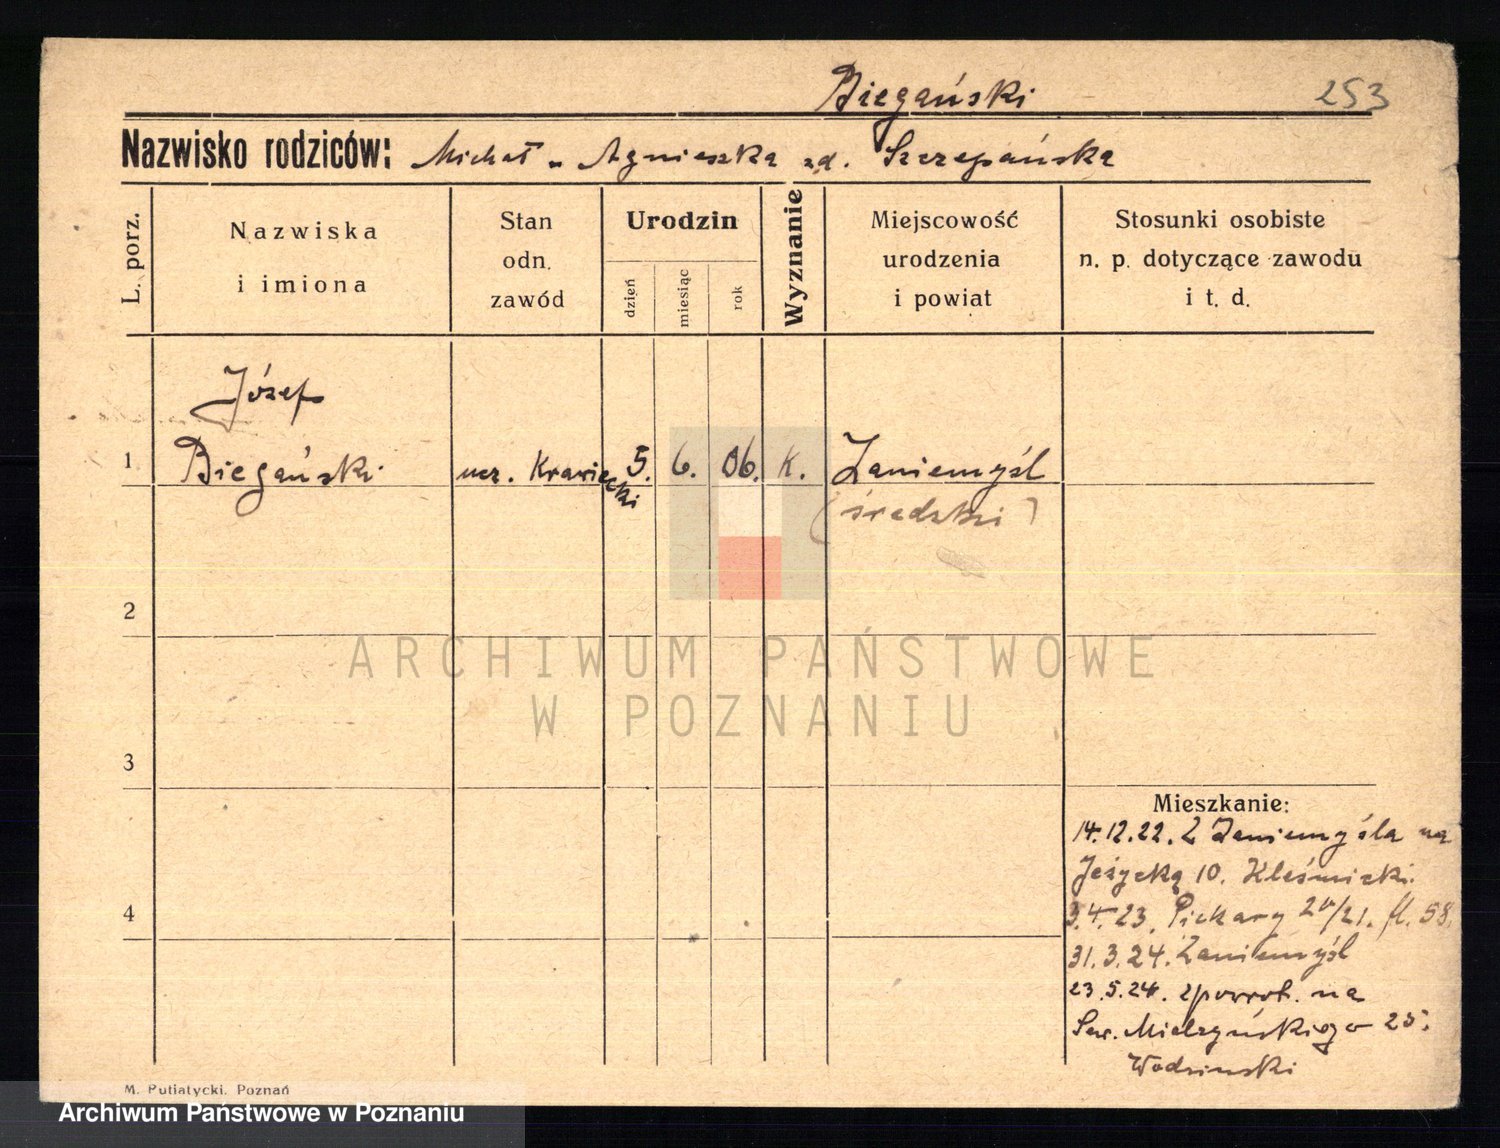 Biegański 253
Nazwisko rodziców: Michał - Agnieszka zd. Szczepańska
L. porz.
Nazwiska
i imiona
Stan
odn.
zawód
Urodzin
dzień
miesiąc
rok
Wyznanie
Miejscowość
urodzenia
i powiat
Stosunki osobiste
n. p. dotyczące zawodu
i t. d.
Józef
1 Biegański ucz. Krawiecki 5. 6. 06. K. Zaniemyśl
(średzki)
2
3
4
ARCHIWUM PAŃSTWOWE
W POZNANIU
Mieszkanie:
14.12.22. Z Zaniemyśla na
Jeżycką 10.
3.4.23. Piekary 20/21. 58.
31.3.24. Zaniemyśl
23.5.24. zpowrot. na
Sew. Mielżyńskiego 25.
Wodzinski
M. Putiatycki. Poznań
Archiwum Państwowe w Poznaniu